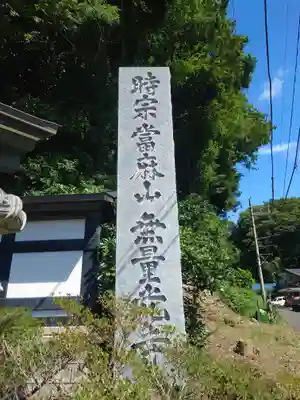 時宗當麻山無量光寺